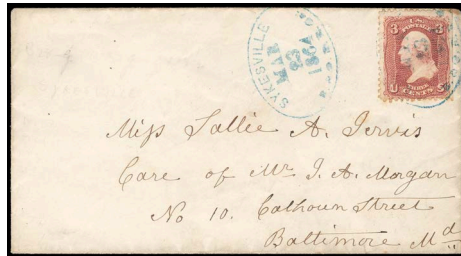 SYKESVILLE
MAR
23
1864
U.S.
3 3
THREE
CENTS
Miss Sallie A. Jervis
Care of Mr J. A. Morgan
No 10. Calhoun Street
Baltimore Md